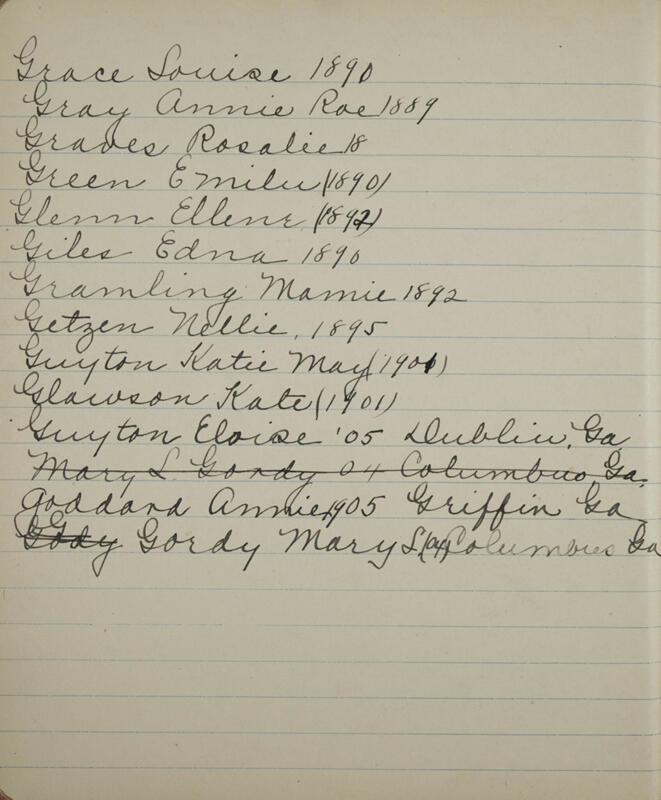 Grace Louise 1890
Gray Annie Roe 1889
Graves Rosalie 18
Green Emilu (1890)
Glenn Ellene (1892)
Giles Edna 1890
Gramling Mamie 1892
Getzen Nellie, 1895
Guyton Katie May (1901)
Glawson Kate (1901)
Guyton Eloise '05 Dublin, Ga
Mary L. Gordy 04 Columbus, Ga.
Goddard Annie, 1905 Griffin Ga
Gordy Mary L (04) Columbus Ga